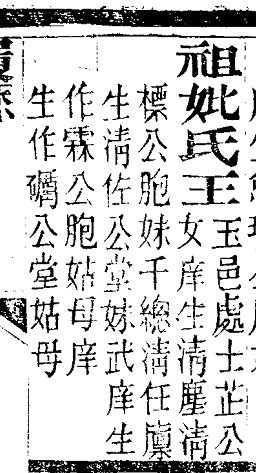 祖妣氏王
玉邑處士芷公
女庠生清塵清
標公胞妹千總清任廩
生清佐公堂妹武庠生
作霖公胞姑母庠
生作礪公堂姑母